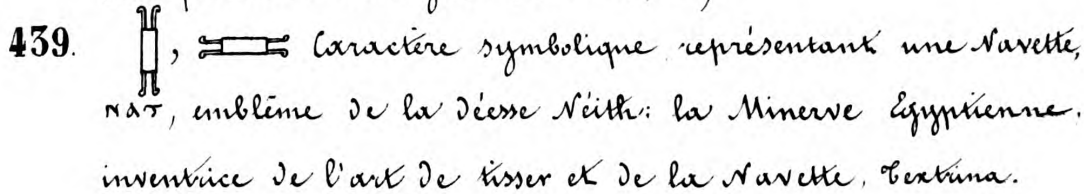 439. , Caractère symbolique représentant une Navette,
ⲛⲁⲧ, emblême de la Déesse Néith: la Minerve Egyptienne.
inventrice de l'art de tisser et de la Navette, Textrina.